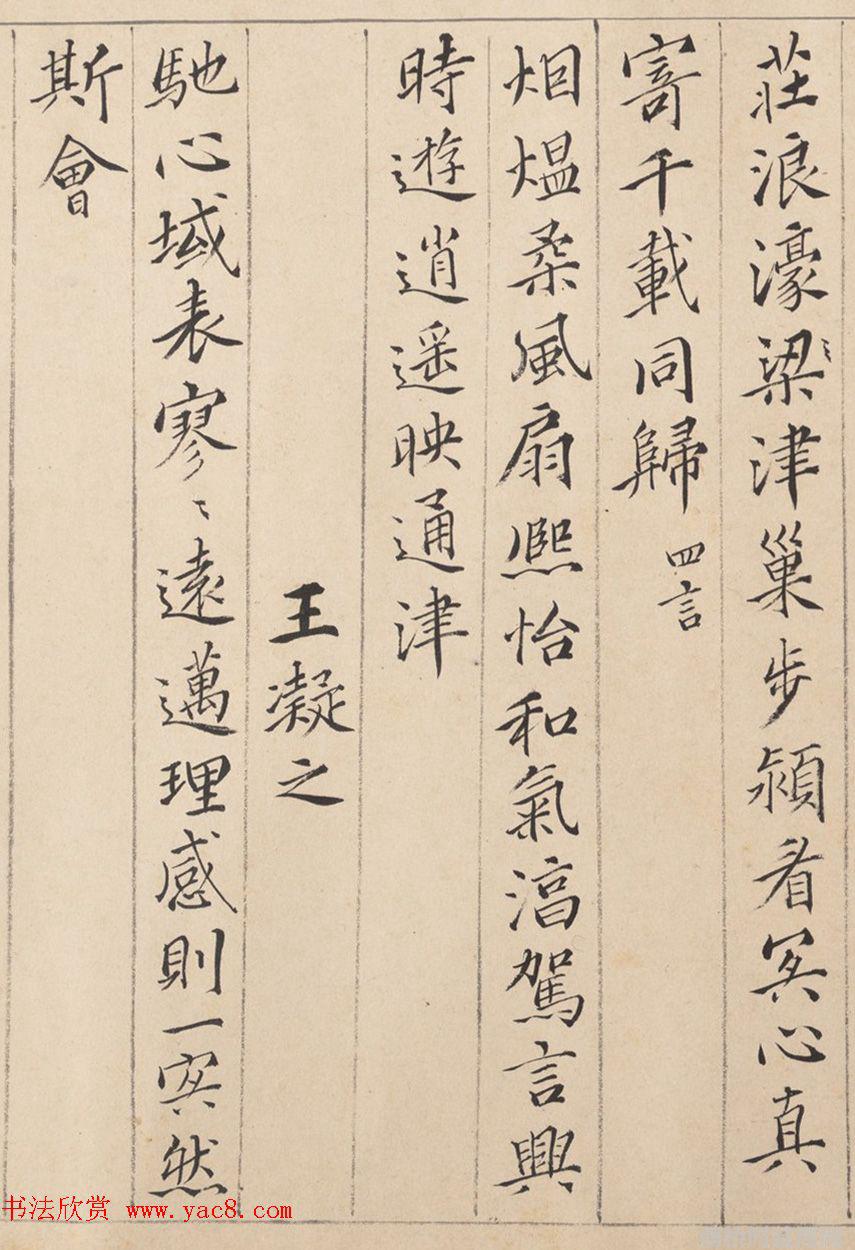 莊浪濠梁津巢步潁看㝠心真
寄千載同歸 四言
烟熅柔風扇熈怡和氣淯駕言興
時遊逍遥映通津
王凝之
馳心域表寥〻遠邁理感則一㝠然
斯會
书法欣赏 www.yac8.com